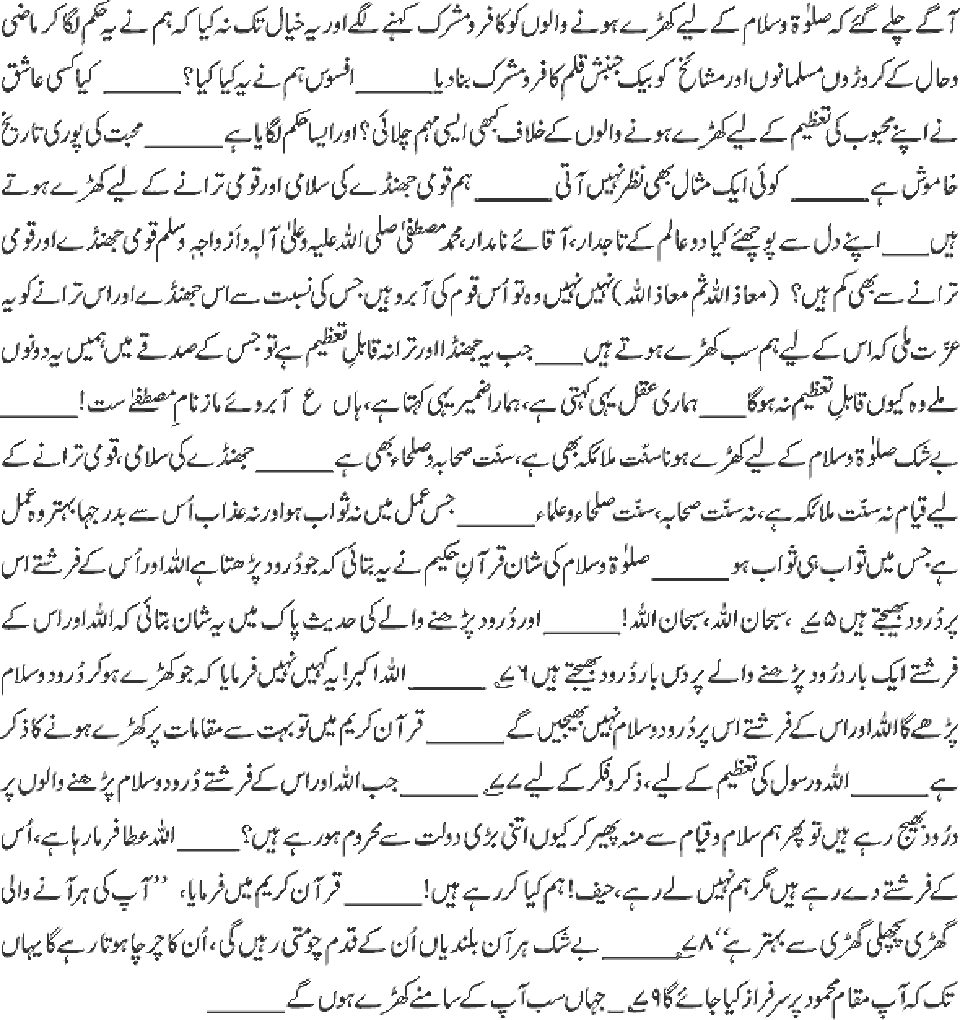 آگے چلے گئے کہ صلوٰۃ و سلام کے لیے کھڑے ہونے والوں کو کافر و مشرک کہنے لگے اور یہ خیال تک نہ کیا کہ ہم نے یہ حکم لگا کر ماضی
وحال کے کروڑوں مسلمانوں اور مشائخ کو بیک جنبش قلم کافر و مشرک بنا دیا______ افسوس ہم نے یہ کیا کیا؟ ______ کیا کسی عاشق
نے اپنے محبوب کی تعظیم کے لیے کھڑے ہونے والوں کے خلاف کبھی ایسی مہم چلائی؟ اور ایسا حکم لگایا ہے ______ محبت کی پوری تاریخ
خاموش ہے ______ کوئی ایک مثال بھی نظر نہیں آتی ______ ہم قومی جھنڈے کی سلامی اور قومی ترانے کے لیے کھڑے ہوتے
ہیں ____ اپنے دل سے پوچھئے کیا دو عالم کے تاجدار، آقائے نامدار، محمد مصطفیٰ صلی اللہ علیہ وعلیٰ آلہٖ وأزواجہٖ وسلم قومی جھنڈے اور قومی
ترانے سے بھی کم ہیں؟ (معاذ اللہ ثم معاذ اللہ) نہیں نہیں وہ تو اُس قوم کی آبرو ہیں جس کی نسبت سے اس جھنڈے اور اس ترانے کو یہ
عزّت ملی کہ اس کے لیے ہم سب کھڑے ہوتے ہیں ____ جب یہ جھنڈا اور ترانہ قابلِ تعظیم ہے تو جس کے صدقے میں ہمیں یہ دونوں
ملے وہ کیوں قابلِ تعظیم نہ ہوگا ____ ہماری عقل یہی کہتی ہے، ہمارا ضمیر یہی کہتا ہے، ہاں ع آبروئے ما ز نامِ مصطفےٰ ست! ______
بے شک صلوٰۃ و سلام کے لیے کھڑے ہونا سنّت ملائکہ بھی ہے، سنّت صحابہ و صلحاء بھی ہے ______ جھنڈے کی سلامی، قومی ترانے کے
لیے قیام نہ سنّت ملائکہ ہے، نہ سنّت صحابہ، سنّت صلحاء و علماء ______ جس عمل میں نہ ثواب ہو اور نہ عذاب اُس سے بدرجہا بہتر وہ عمل
ہے جس میں ثواب ہی ثواب ہو ______ صلوٰۃ و سلام کی شان قرآنِ حکیم نے یہ بتائی کہ جو دُرود پڑھتا ہے اللہ اور اُس کے فرشتے اس
پر دُرود بھیجتے ہیں ۷۵؂ ، سبحان اللہ، سبحان اللہ! ______ اور دُرود پڑھنے والے کی حدیث پاک میں یہ شان بتائی کہ اللہ اور اس کے
فرشتے ایک بار درُود پڑھنے والے پر دس بار دُرود بھیجتے ہیں ۷۶؂ ______ اللہ اکبر! یہ کہیں نہیں فرمایا کہ جو کھڑے ہو کر دُرود و سلام
پڑھے گا اللہ اور اس کے فرشتے اس پر دُرود و سلام نہیں بھیجیں گے ______ قرآن کریم میں تو بہت سے مقامات پر کھڑے ہونے کا ذکر
ہے ______ اللہ و رسول کی تعظیم کے لیے، ذکر و فکر کے لیے ۷۷؂ ______ جب اللہ اور اس کے فرشتے دُرود و سلام پڑھنے والوں پر
درُود بھیج رہے ہیں تو پھر ہم سلام و قیام سے منہ پھیر کر کیوں اتنی بڑی دولت سے محروم ہو رہے ہیں؟ _____ اللہ عطا فرما رہا ہے، اُس
کے فرشتے دے رہے ہیں مگر ہم نہیں لے رہے، حیف! ہم کیا کر رہے ہیں! ______ قرآن کریم میں فرمایا، ’’آپ کی ہر آنے والی
گھڑی پچھلی گھڑی سے بہتر ہے‘‘ ۷۸؂ ______ بے شک ہر آن بلندیاں اُن کے قدم چومتی رہیں گی، اُن کا چرچا ہوتا رہے گا یہاں
تک کہ آپ مقام محمود پر سرفراز کیا جائے گا ۷۹؂ _ جہاں سب آپ کے سامنے کھڑے ہوں گے ______